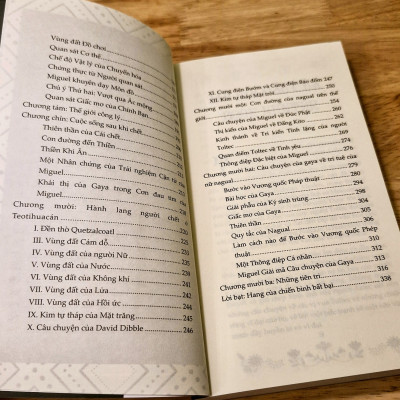 Vùng đất Đồ chơi
Quan sát Cơ thể
Chế độ Vật lý của Chuyển hóa
Chứng thực từ Người quan sát
Miguel khuyên dạy Môn đồ
Chú ý Thứ hai: Vượt qua Ác mộng
Quan sát Giấc mơ của Chính bạn
Chương tám: Thế giới công lý
Chương chín: Cuộc sống sau khi chết
Thiên thần của Cái chết
Con đường đến Thiền
Thiền Khí Ấn
Một Nhân chứng của Trải nghiệm Cận tử của
Miguel
Khải thị của Gaya trong Cơn đau tim của
Miguel
Chương mười: Hành lang người chết ở
Teotihuacán 226
I. Đền thờ Quetzalcoatl
III. Vùng đất Cám dỗ
IV. Vùng đất của người Nữ
V. Vùng đất của Nước
VI. Vùng đất của Không khí
VII. Vùng đất của Lửa
VIII. Vùng đất của Hồi ức
IX. Kim tự tháp của Mặt trăng 245
X. Câu chuyện của David Dibble 246
XI. Cung điện Bướm và Cung điện Báo đốm 247
XII. Kim tự tháp Mặt trời 250
Chương mười một: Con đường của nagual trên thế
giới 254
Câu chuyện của Miguel về Đức Phật
Thị kiến của Miguel về Đấng Kito
Kinh thánh về Tri kiến Tĩnh lặng của người
Toltec
Quan điểm Toltec về Tình yêu
Thông điệp Đặc biệt của Miguel
Chương mười hai: Câu chuyện của gaya về trí tuệ của
nữ nagual 279
Bước vào Vương quốc Pháp thuật 280
Bài học của Gaya
Giải phẫu của Ký sinh trùng
Giấc mơ của Gaya 298
Thiên thần 304
Quy tắc của Nagual 305
Làm cách nào để Bước vào Vương quốc Phép
thuật 310
Một Thông điệp Cá nhân 312
Miguel Giải mã Câu chuyện của Gaya 313
Chương mười ba: Những tiên tri 316
Lời bạt: Hang của chiến binh bất bại 338